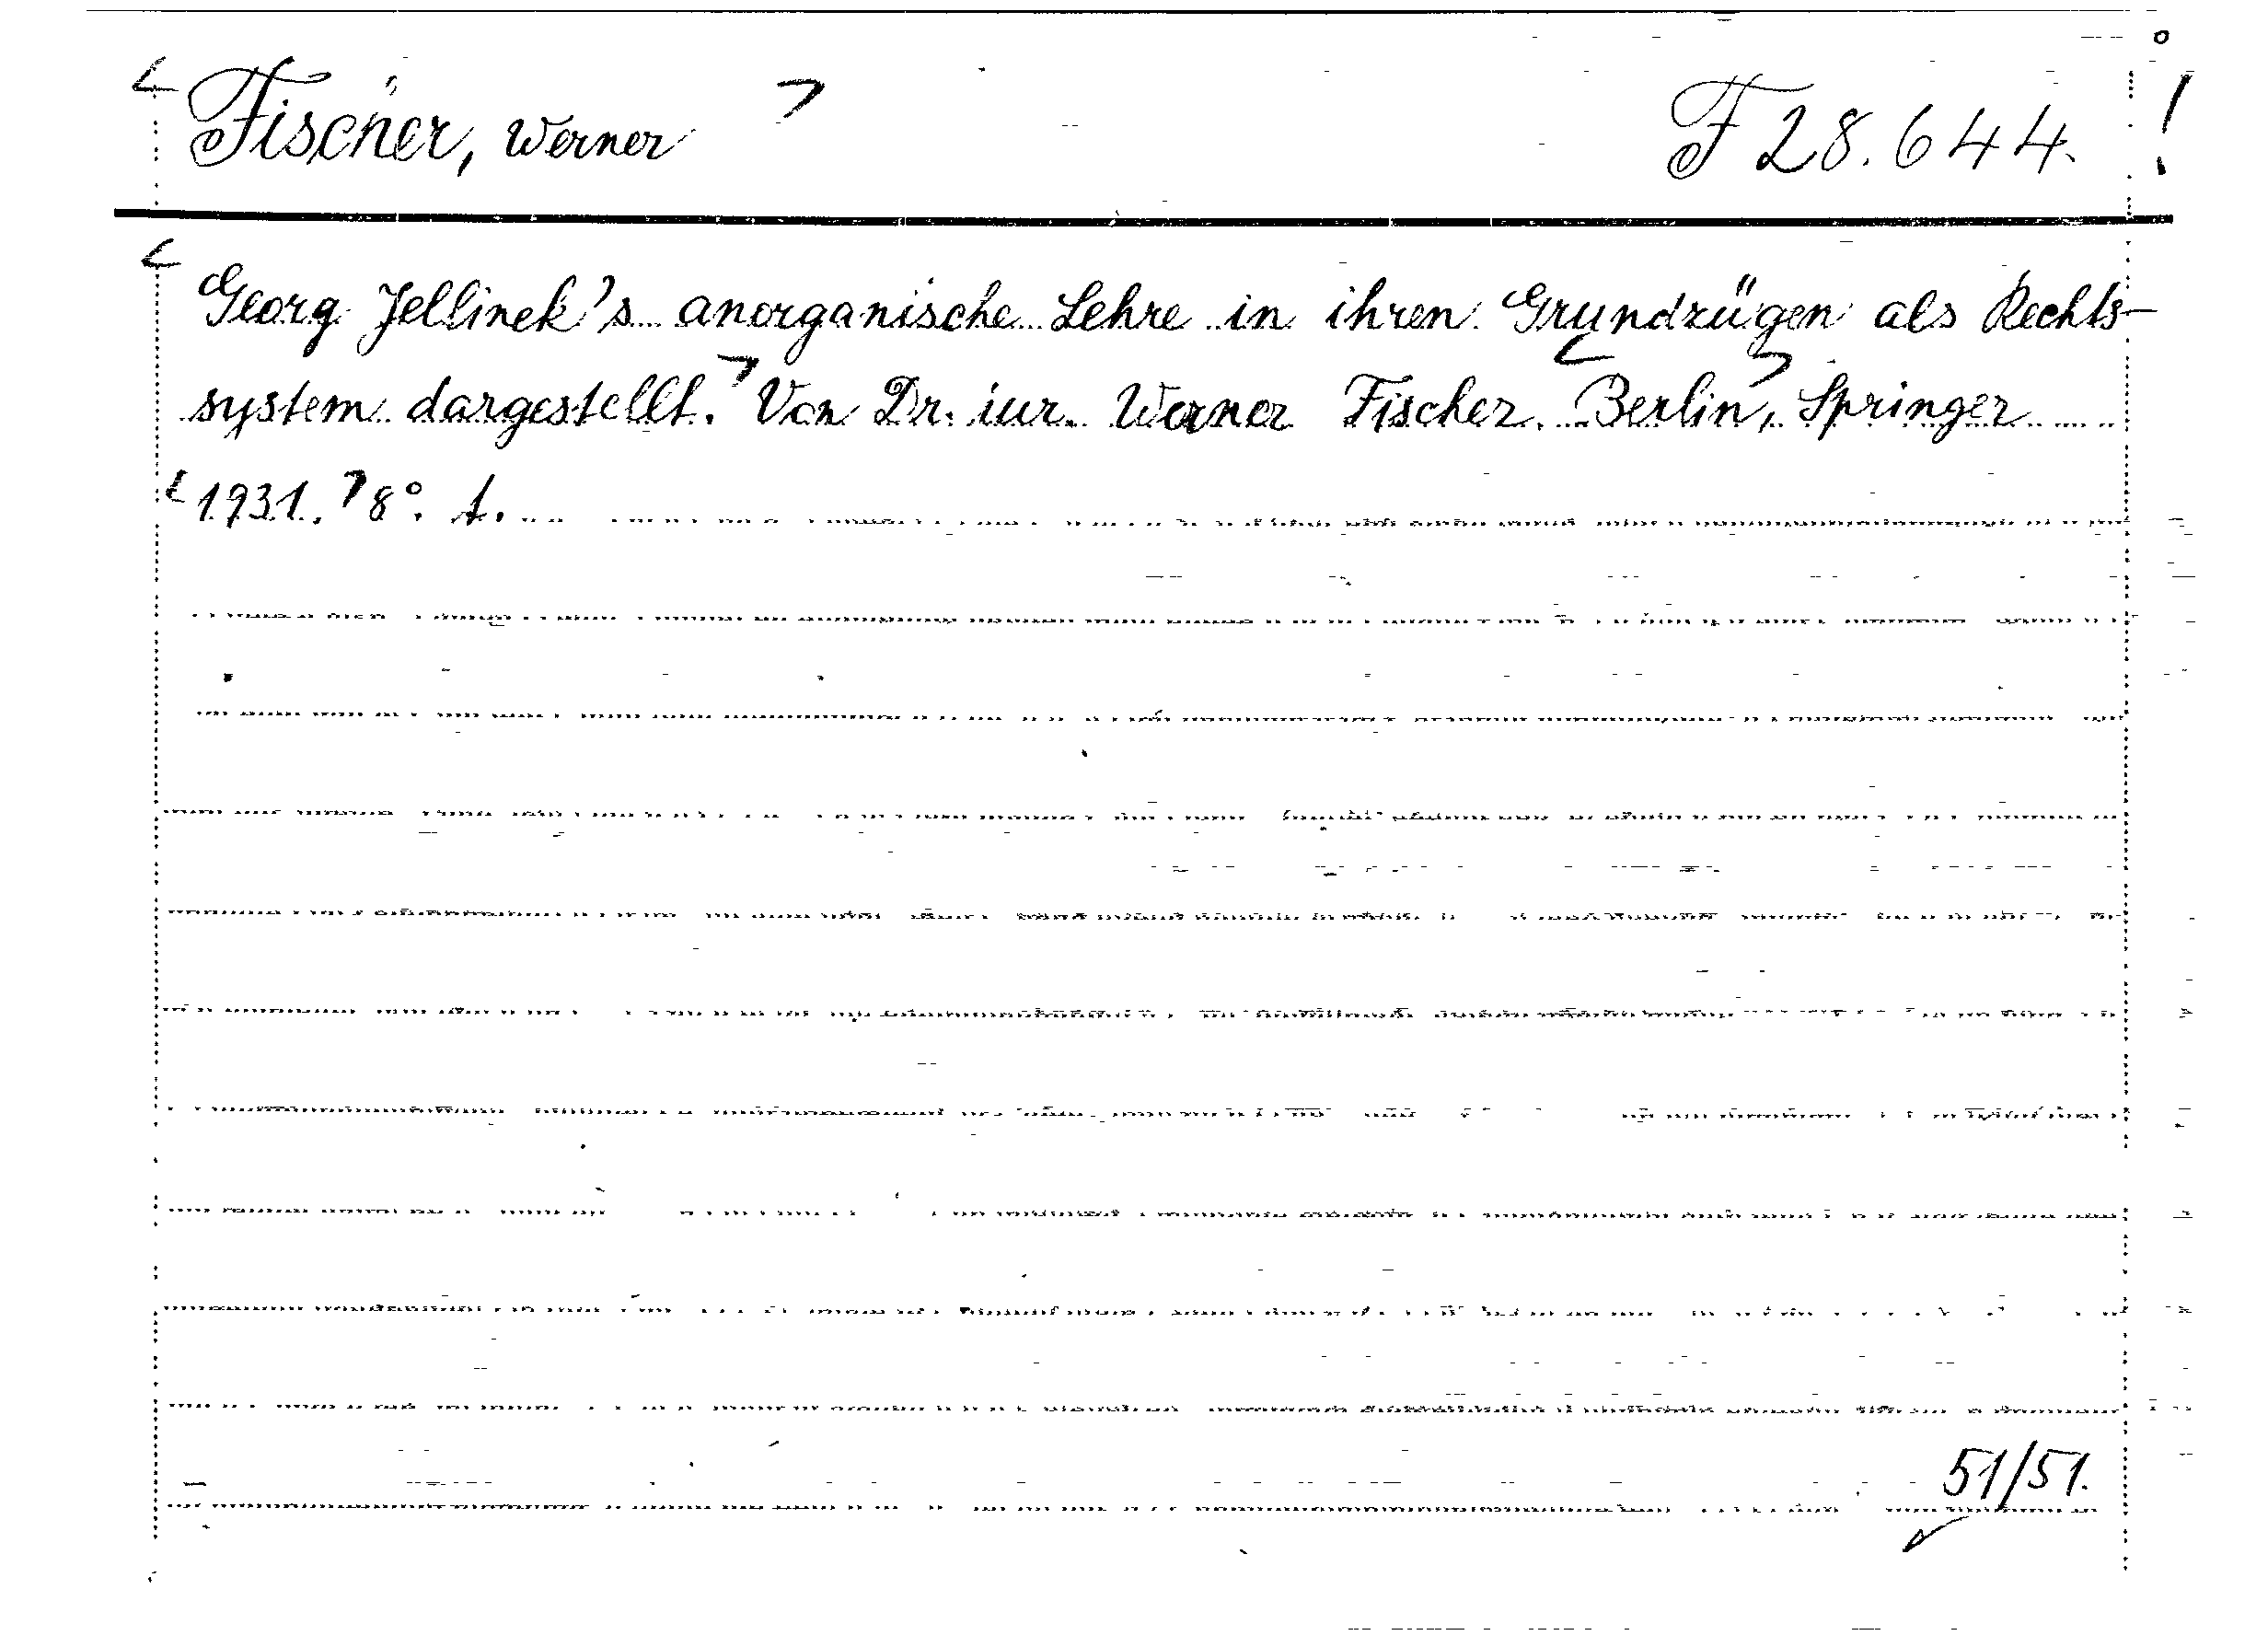 Fischer, Werner
F 28.644. !
Georg Jellinek's anorganische Lehre in ihren Grundzügen als Rechts-
system dargestellt. Von Dr. iur. Werner Fischer. Berlin, Springer
1931. 8°. 1.
51/51.